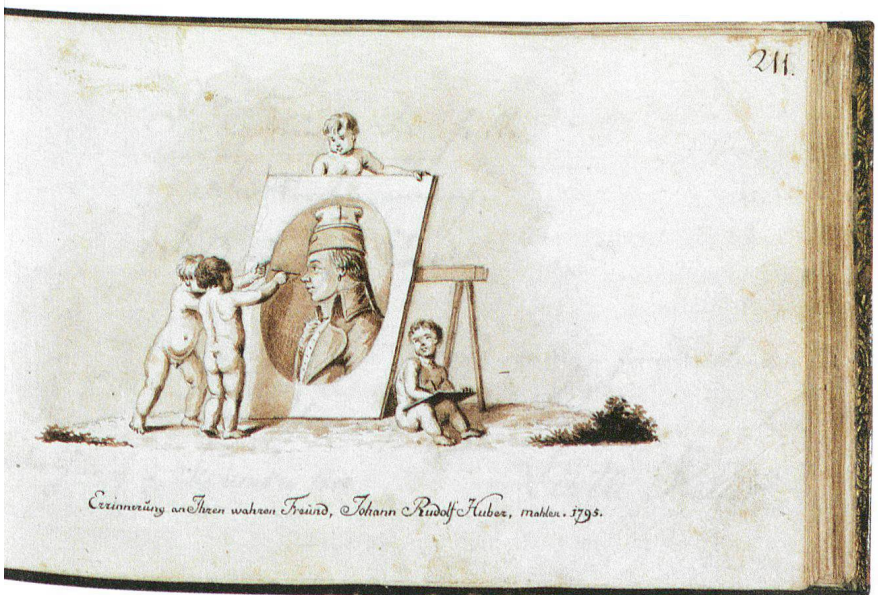 211.
Errinnerung an Ihren wahren Freund, Johann Rudolf Huber, mahler. 1795.